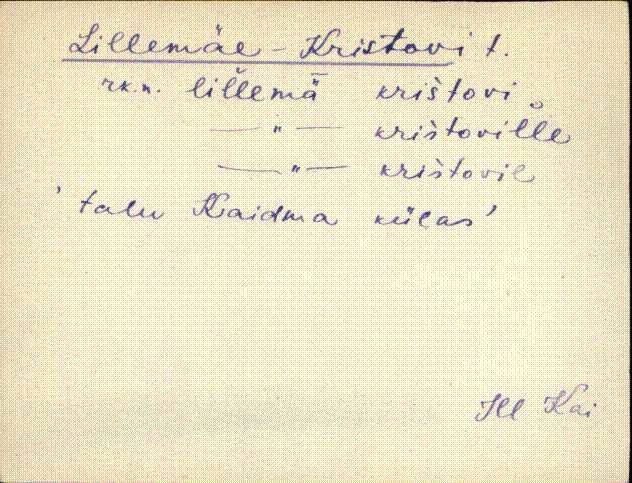 Lillemäe - Kristovi t.
rk.n. lil̆lemǟ krištovi
—"— krištoville
—"— krištovil
'talu Kaidma külas'
Jll Kai